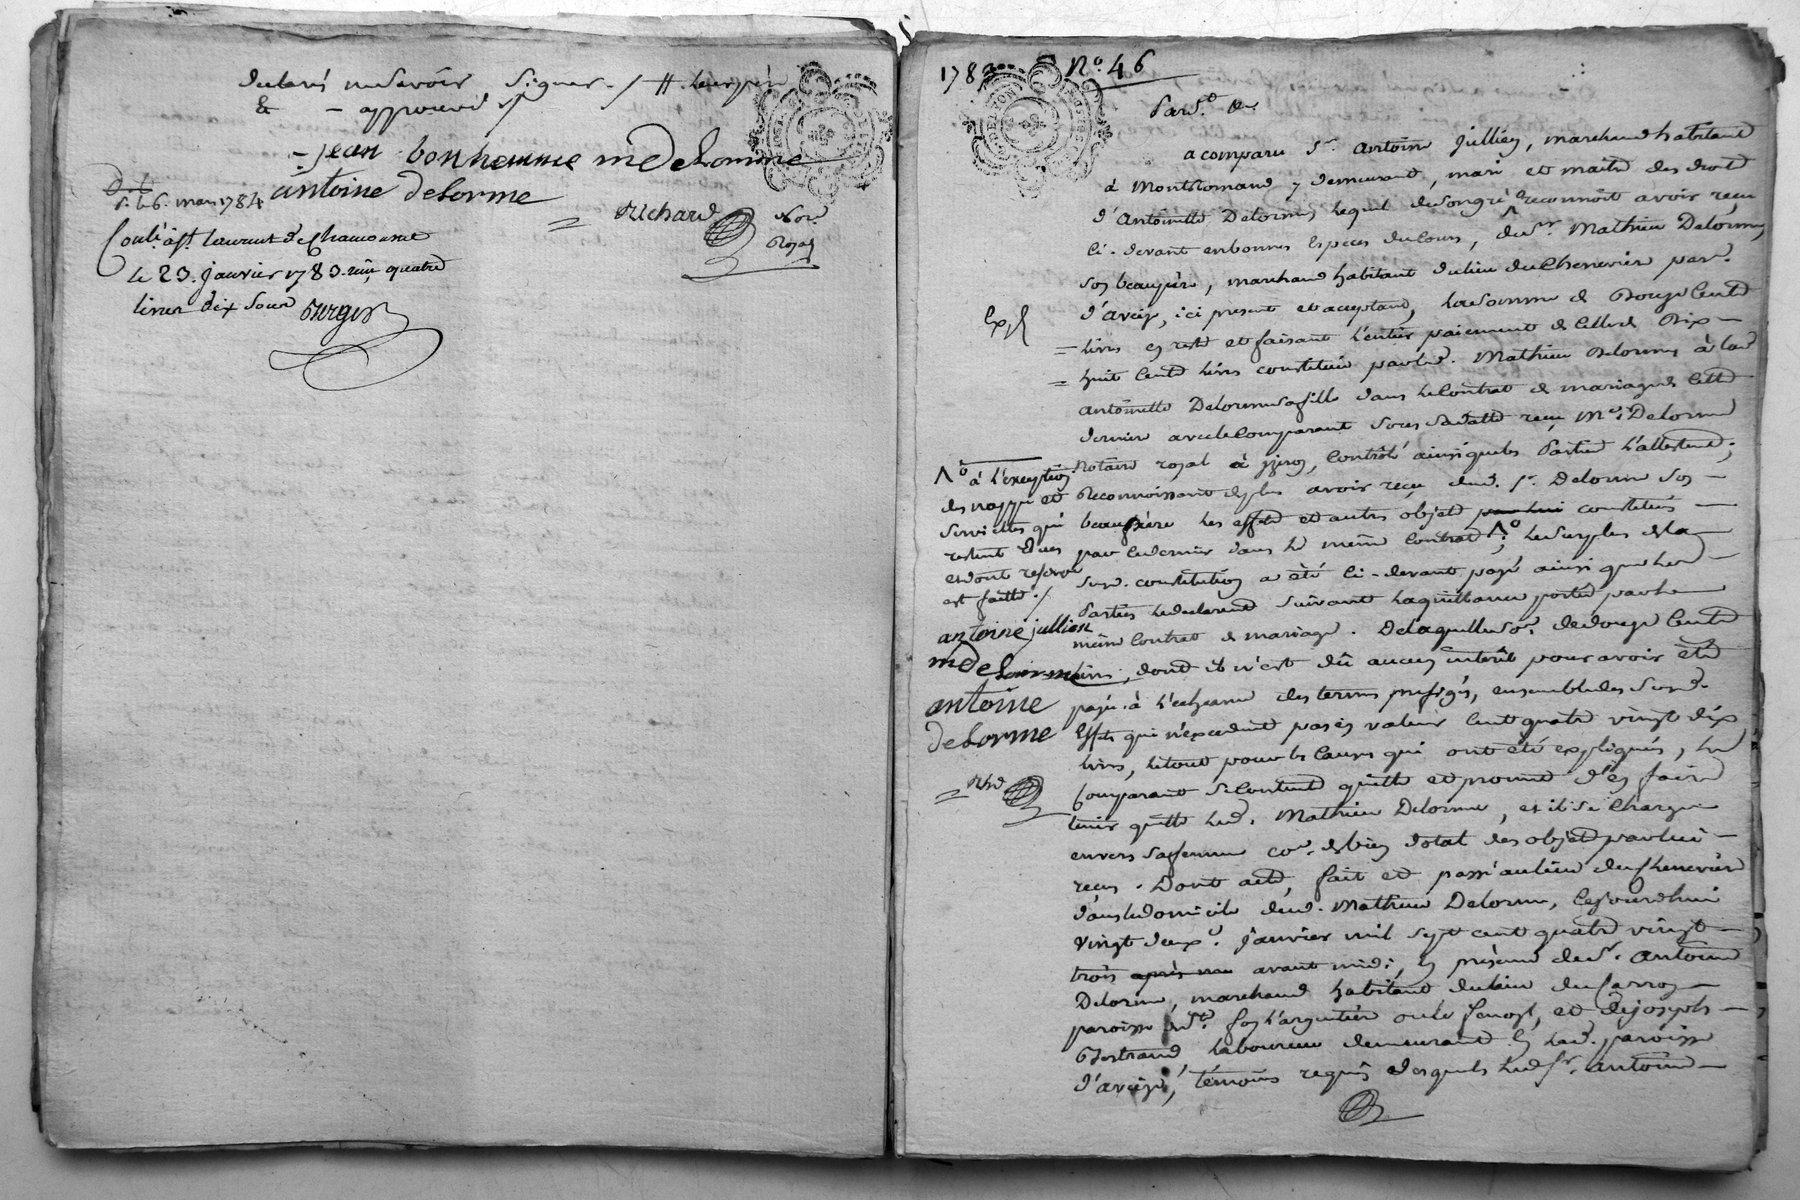 declaré ne savoir signer ./ #
& - approuvé
- jean bonhemme mdelorme
antoine delorme
d. le 6. mars 1784
Richard Not.
Royal
Conlé. à St. laurent de Chamousset
le 23. janvier 1783. reçu quatre
livres dix sous
1783 No. 46
Pard.
a comparu Sr. antoine Jullien, marchand habitant
à Montromand y demeurant, mari et maitre des droits
d'antoinette Delorme, lequel de son gré reconnoit avoir reçu
ci-devant en bonnes especes du cours, du Sr. Mathieu Delorme
son beaupère, marchand habitant du lieu du Chenevier par.
d'aveize, ici présent et acceptant, la somme de Douze Cents
= livres en reste et faisant l'entier paiement de celle de Dix-
= huit Cents livres constituée par led. Mathieu Delorme à lad.
antoinette Delorme sa fille dans le Contrat de mariage de cette
derniere avec le Comparant sous sa datte reçu Me. Delorme
notaire royal à , Contrôlé ainsi que les Parties l'attestent;
Reconnoissant de plus avoir reçu dud. Sr. Delorme son
beaupère les effets et autres objets par lui constitués
par ce dernier dans le même Contrat; le surplus de la
susd. constitution a été ci-devant payé ainsi que les
Parties le declarent suivant la quittance portée par le
même Contrat de mariage. De laquelle so. de douze Cents
livres, dont il n'est dû aucun intérêt pour avoir été
payé à l'echeance des termes prefigés, ensemble des susd.
Effets qui n'excedent pas en valeur Cent quatre vingt dix
livres, le tout pour les Causes qui ont été expliquées, led.
Comparant se Contente quitte et promet d'en faire
tenir quitte led. Mathieu Delorme, et il se charge
envers sa femme co. de bien dotal des objets par lui
reçus. Dont acte, fait et passé au lieu du Chenevier
dans le domicile dud. Mathieu Delorme, Cejourdhui
vingt deux. janvier mil sept cent quatre vingt
trois après mi avant midi, en présence de Sr. antoine
Delorme, marchand habitant du lieu du
paroisse de St. foy l'argentière ou le , et de joseph
Bertrand laboureur demeurant en lad. paroisse
d'aveize, témoins requis desquels led. Sr. antoine
Exp.
à l'exception
des nappes et
serviettes qui
restent dues
et dont reserve
est faitte ./
antoine jullien
mdelorme
antoine
delorme
Rhd